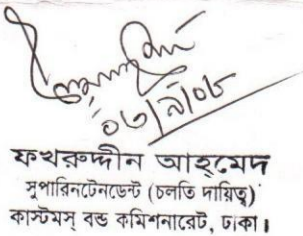 ০৬/৯/০৮
ফখরুদ্দীন আহ্‌মেদ
সুপারিনটেনডেন্ট (চলতি দায়িত্ব)
কাস্টমস্ বন্ড কমিশনারেট, ঢাকা।